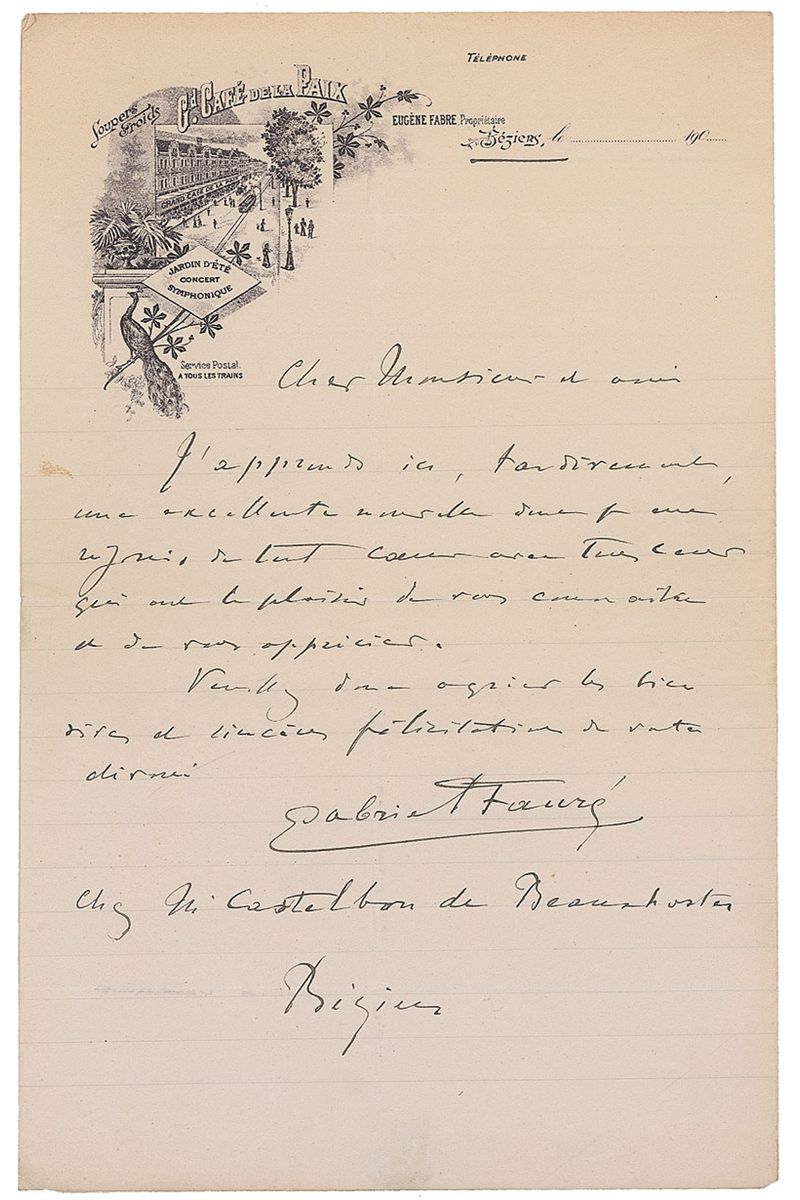 TÉLÉPHONE
Soupers Froids
Gd. CAFÉ DE LA PAIX
EUGÈNE FABRE, Propriétaire
Béziers, le ........................ 190......
GRAND CAFÉ DE LA PAIX
JARDIN D'ÉTÉ
CONCERT
SYMPHONIQUE
Service Postal.
A TOUS LES TRAINS
Cher Monsieur et ami
J'apprends ici, tardivement,
une excellente nouvelle dont je me
réjouis de tout cœur avec tous ceux
qui ont le plaisir de vous connaître
et de vous apprécier.
Veuillez donc agréer les bien
vives et sincères félicitations de votre
dévoué
Gabriel Fauré
Chez Mr Castelbon de Beauxhostes
Béziers